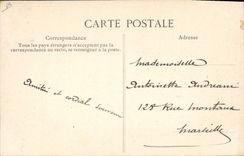 CARTE POSTALE
Correspondance
Tous les pays étrangers n'acceptent pas la
correspondance au verso, se renseigner à la poste.
Adresse
Amitié et cordial souvenir
Mademoiselle
Antoinette Andreani
128 Rue Montaux
Marseille